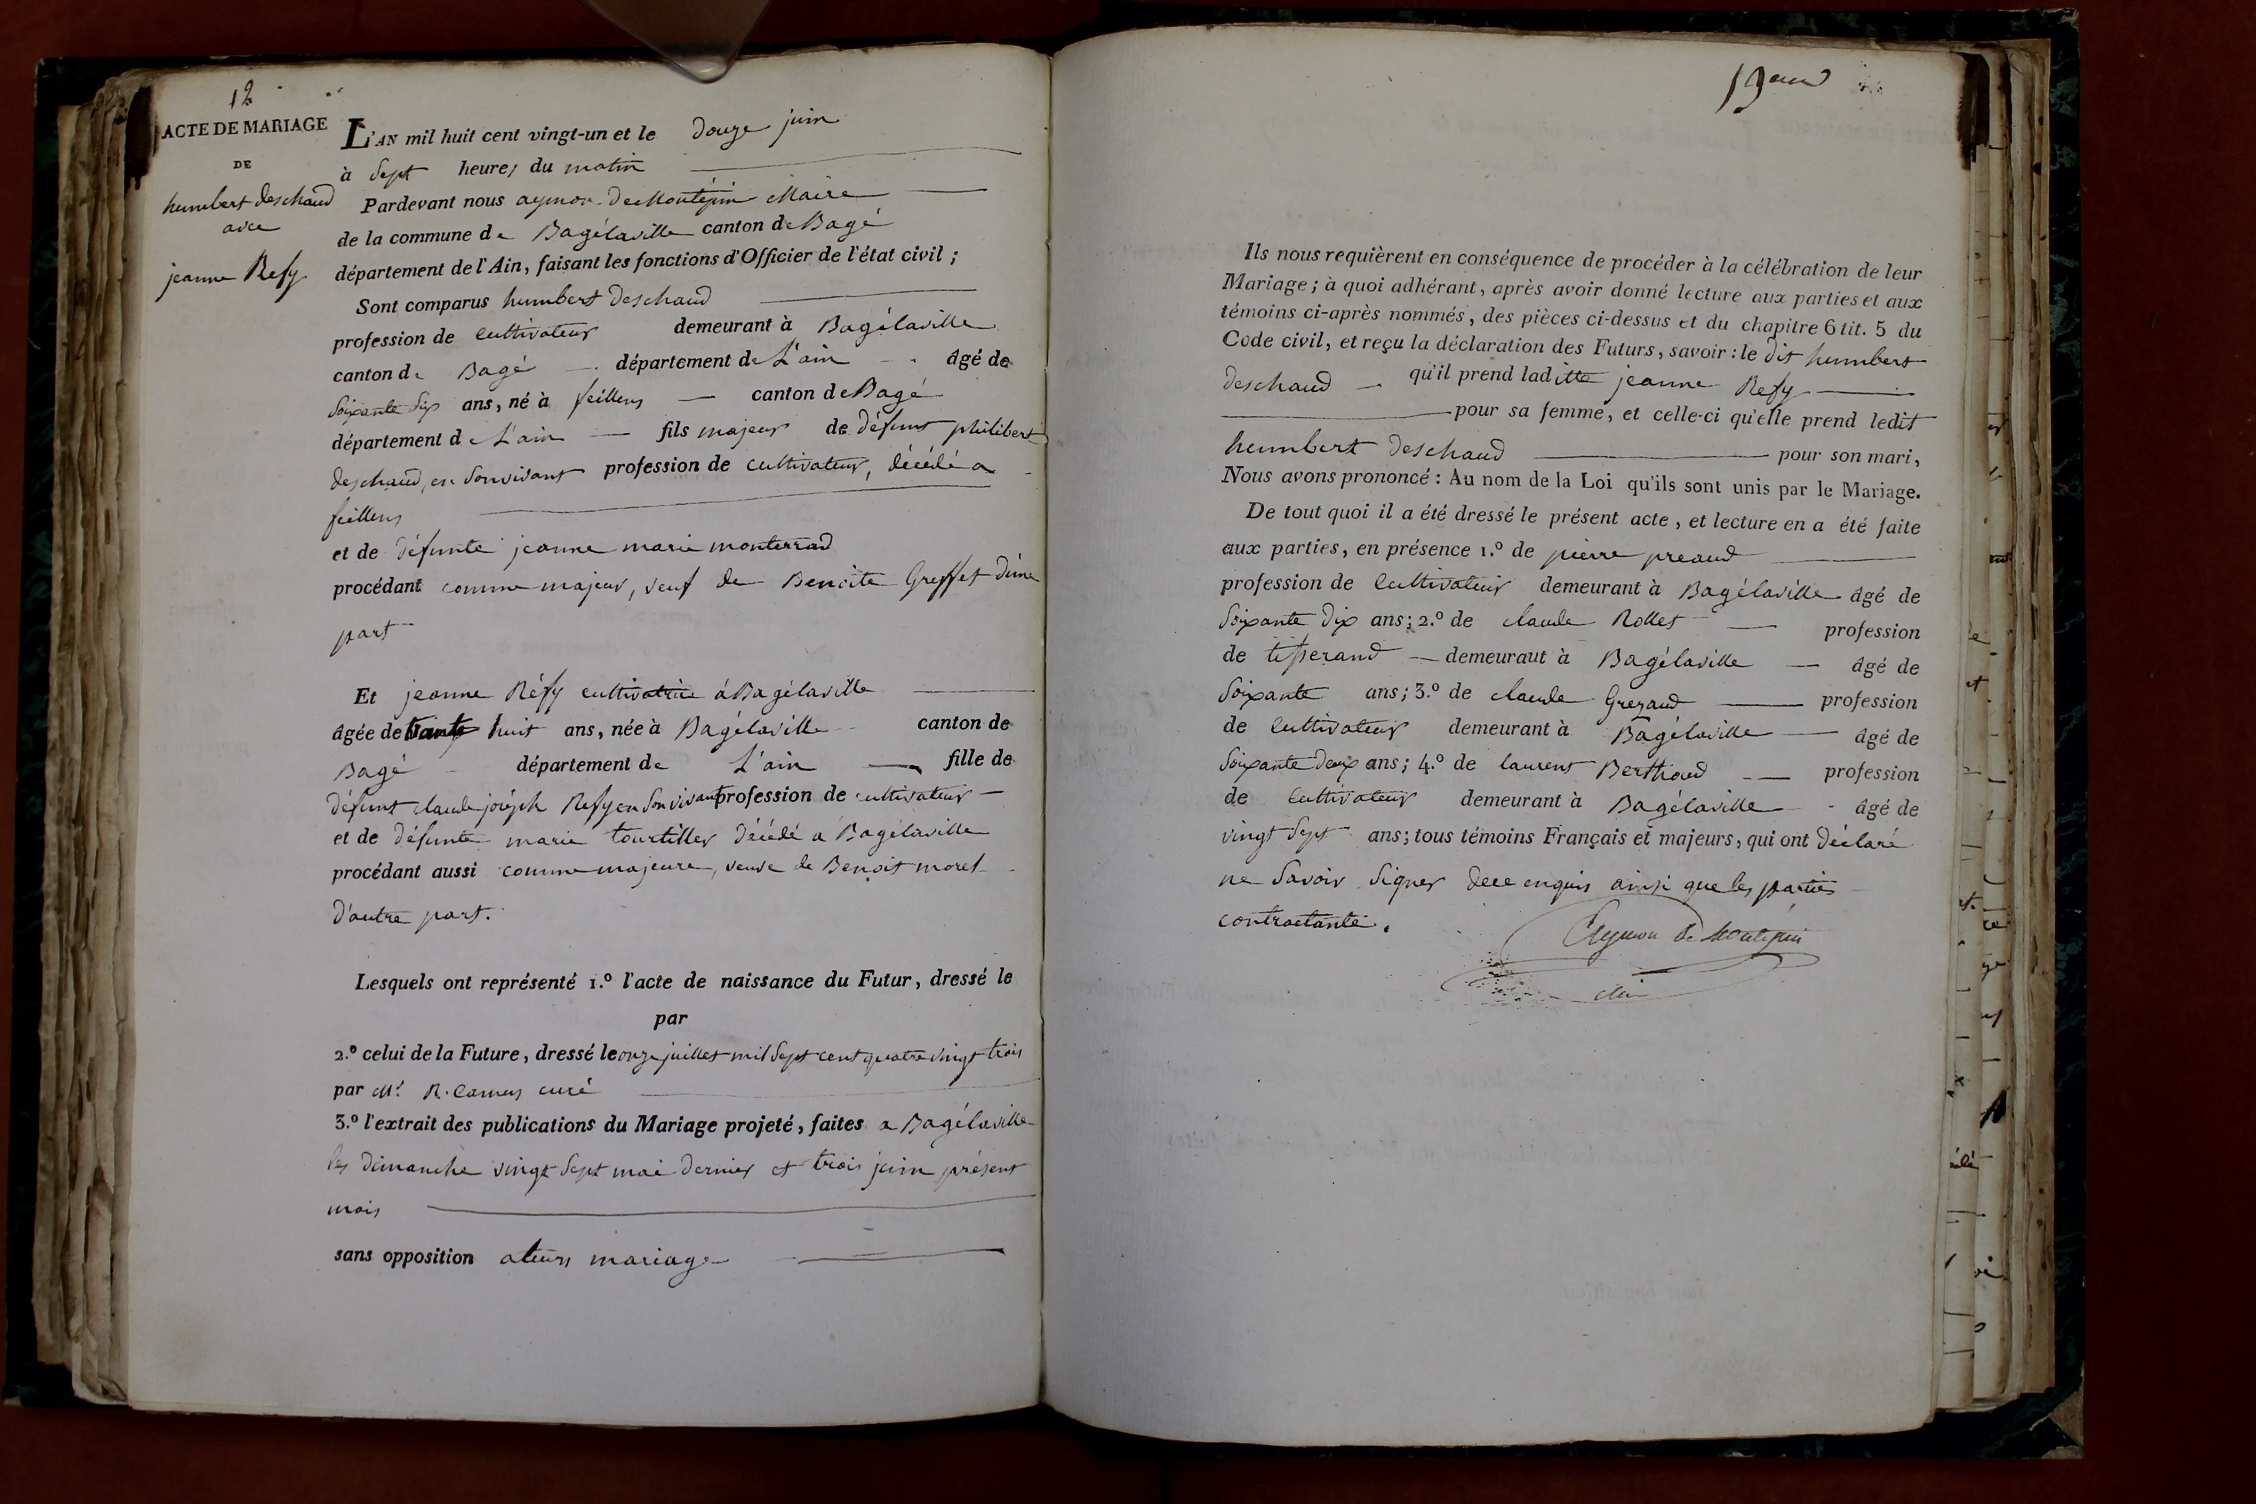 12
ACTE DE MARIAGE
DE
humbert deschaud
avec
jeanne Refy
L'AN mil huit cent vingt-un et le douze juin
à Sept heures du matin
Pardevant nous aymon De Montépin Maire
de la commune de Bagélaville canton de Bagé
département de l'Ain, faisant les fonctions d'Officier de l'état civil ;
Sont comparus humbert deschaud
profession de cultivateur demeurant à Bagélaville
canton de Bagé département de L'ain âgé de
Soixante Six ans, né à feillens canton de Bagé
département de L'ain fils majeur de défunt philibert
deschaud, en Son vivant profession de cultivateur, décédé a
feillens
et de défunte jeanne marie monterrad
procédant comme majeur, veuf de Benoite Greffet d'une
part
Et jeanne Réfy cultivatrice á Bagélaville
âgée de trente huit ans, née à Bagélaville canton de
Bagé département de L'ain fille de
défunt claude joséph Refy en Son vivant profession de cultivateur
et de défunte marie tourtillet décédé a Bagélaville
procédant aussi comme majeure, veuve de Benoit morel
d'autre part.
Lesquels ont représenté 1.º l'acte de naissance du Futur, dressé le
par
2.º celui de la Future, dressé le onze juillet mil Sept cent quatre vingt trois
par Mr R. Camus curé
3.º l'extrait des publications du Mariage projeté, faites a Bagélaville
les dimanche vingt Sept mai dernier et trois juin présent
mois
sans opposition a leurs mariage
Ils nous requièrent en conséquence de procéder à la célébration de leur
Mariage ; à quoi adhérant, après avoir donné lecture aux parties et aux
témoins ci-après nommés, des pièces ci-dessus et du chapitre 6 tit. 5 du
Code civil, et reçu la déclaration des Futurs, savoir : le dit humbert
deschaud qu'il prend laditte jeanne Refy
pour sa femme, et celle-ci qu'elle prend ledit
humbert deschaud pour son mari,
Nous avons prononcé : Au nom de la Loi qu'ils sont unis par le Mariage.
De tout quoi il a été dressé le présent acte, et lecture en a été faite
aux parties, en présence 1.º de pierre preaud
profession de cultivateur demeurant à Bagélaville âgé de
Soixante dix ans ; 2.º de claude Rollet profession
de tisserand demeurant à Bagélaville âgé de
Soixante ans ; 3.º de claude Greraud profession
de cultivateur demeurant à Bagélaville âgé de
Soixante deux ans ; 4.º de laurent Berthoud profession
de cultivateur demeurant à Bagélaville âgé de
vingt Sept ans ; tous témoins Français et majeurs, qui ont déclaré
ne Savoir Signer de ce enquis ainsi que les parties
contractante.
Aymon de Montépin